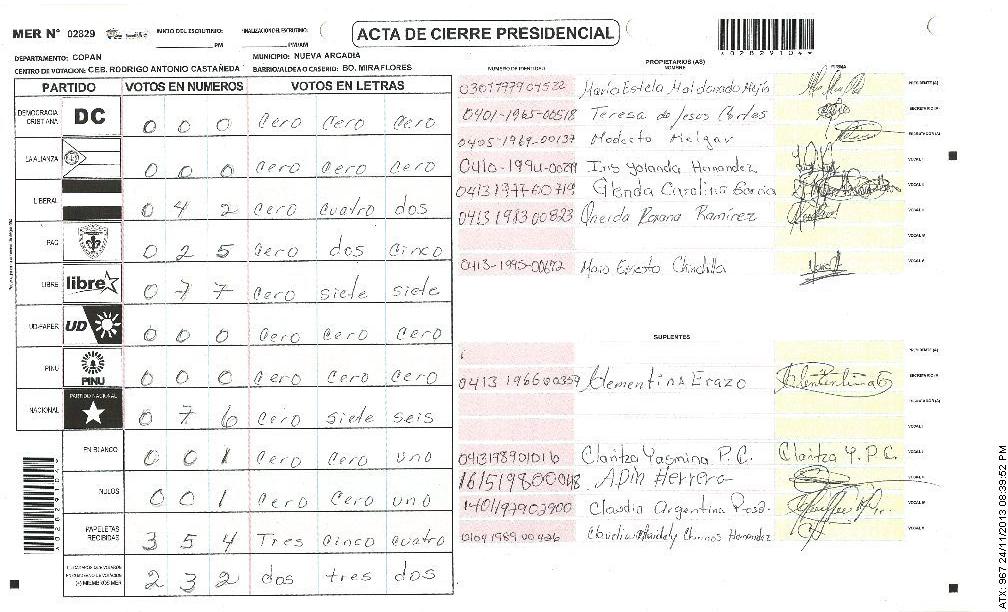 MER N° 02829
INICIO DEL ESCRUTINIO: PM
FINALIZACION DEL ESCRUTINIO: PM/AM
ACTA DE CIERRE PRESIDENCIAL
DEPARTAMENTO: COPAN
MUNICIPIO: NUEVA ARCADIA
CENTRO DE VOTACION: CEB. RODRIGO ANTONIO CASTAÑEDA
BARRIO/ALDEA O CASERIO: BO. MIRAFLORES
PARTIDO VOTOS EN NUMEROS VOTOS EN LETRAS
DEMOCRACIA CRISTIANA DC 0 0 0 Cero Cero Cero
LA ALIANZA 0 0 0 Cero Cero Cero
LIBERAL 0 4 2 Cero Cuatro dos
PAC 0 2 5 Cero dos Cinco
LIBRE libre 0 7 7 Cero siete siete
UD-FAPER UD 0 0 0 Cero Cero Cero
PINU PINU 0 0 0 Cero Cero Cero
NACIONAL PARTIDO NACIONAL 0 7 6 Cero siete seis
EN BLANCO 0 0 1 Cero Cero uno
NULOS 0 0 1 Cero Cero uno
PAPELETAS RECIBIDAS 3 5 4 Tres Cinco Cuatro
2 3 2 dos tres dos
PROPIETARIOS (AS)
NUMERO DE IDENTIDAD NOMBRE FIRMA
María Estela Maldonado Mejía PRESIDENTE (A)
0401-1965-00518 Teresa de Jesus Cortes SECRETARIO (A)
0405-1969-00137 Modesto Melgar ESCRUTADOR (A)
Iris Yolanda Hernandez VOCAL I
0413197760719 Glenda Carolina Garcia VOCAL II
0413198300823 Oneida Roxana Ramírez VOCAL III
VOCAL IV
0413-1995-00672 Mario Ernesto Chinchilla VOCAL V
SUPLENTES
PRESIDENTE (A)
0413196600359 Clementina Erazo SECRETARIO (A)
ESCRUTADOR (A)
VOCAL I
0413198901016 Claritza Yasmina P.C. Claritza Y. P.C.
Herrera
1401197903900 Claudia Argentina
0104198900426 Claudia Hernandez
02829104
ATX: 967 24/11/2013 08:39:52 PM